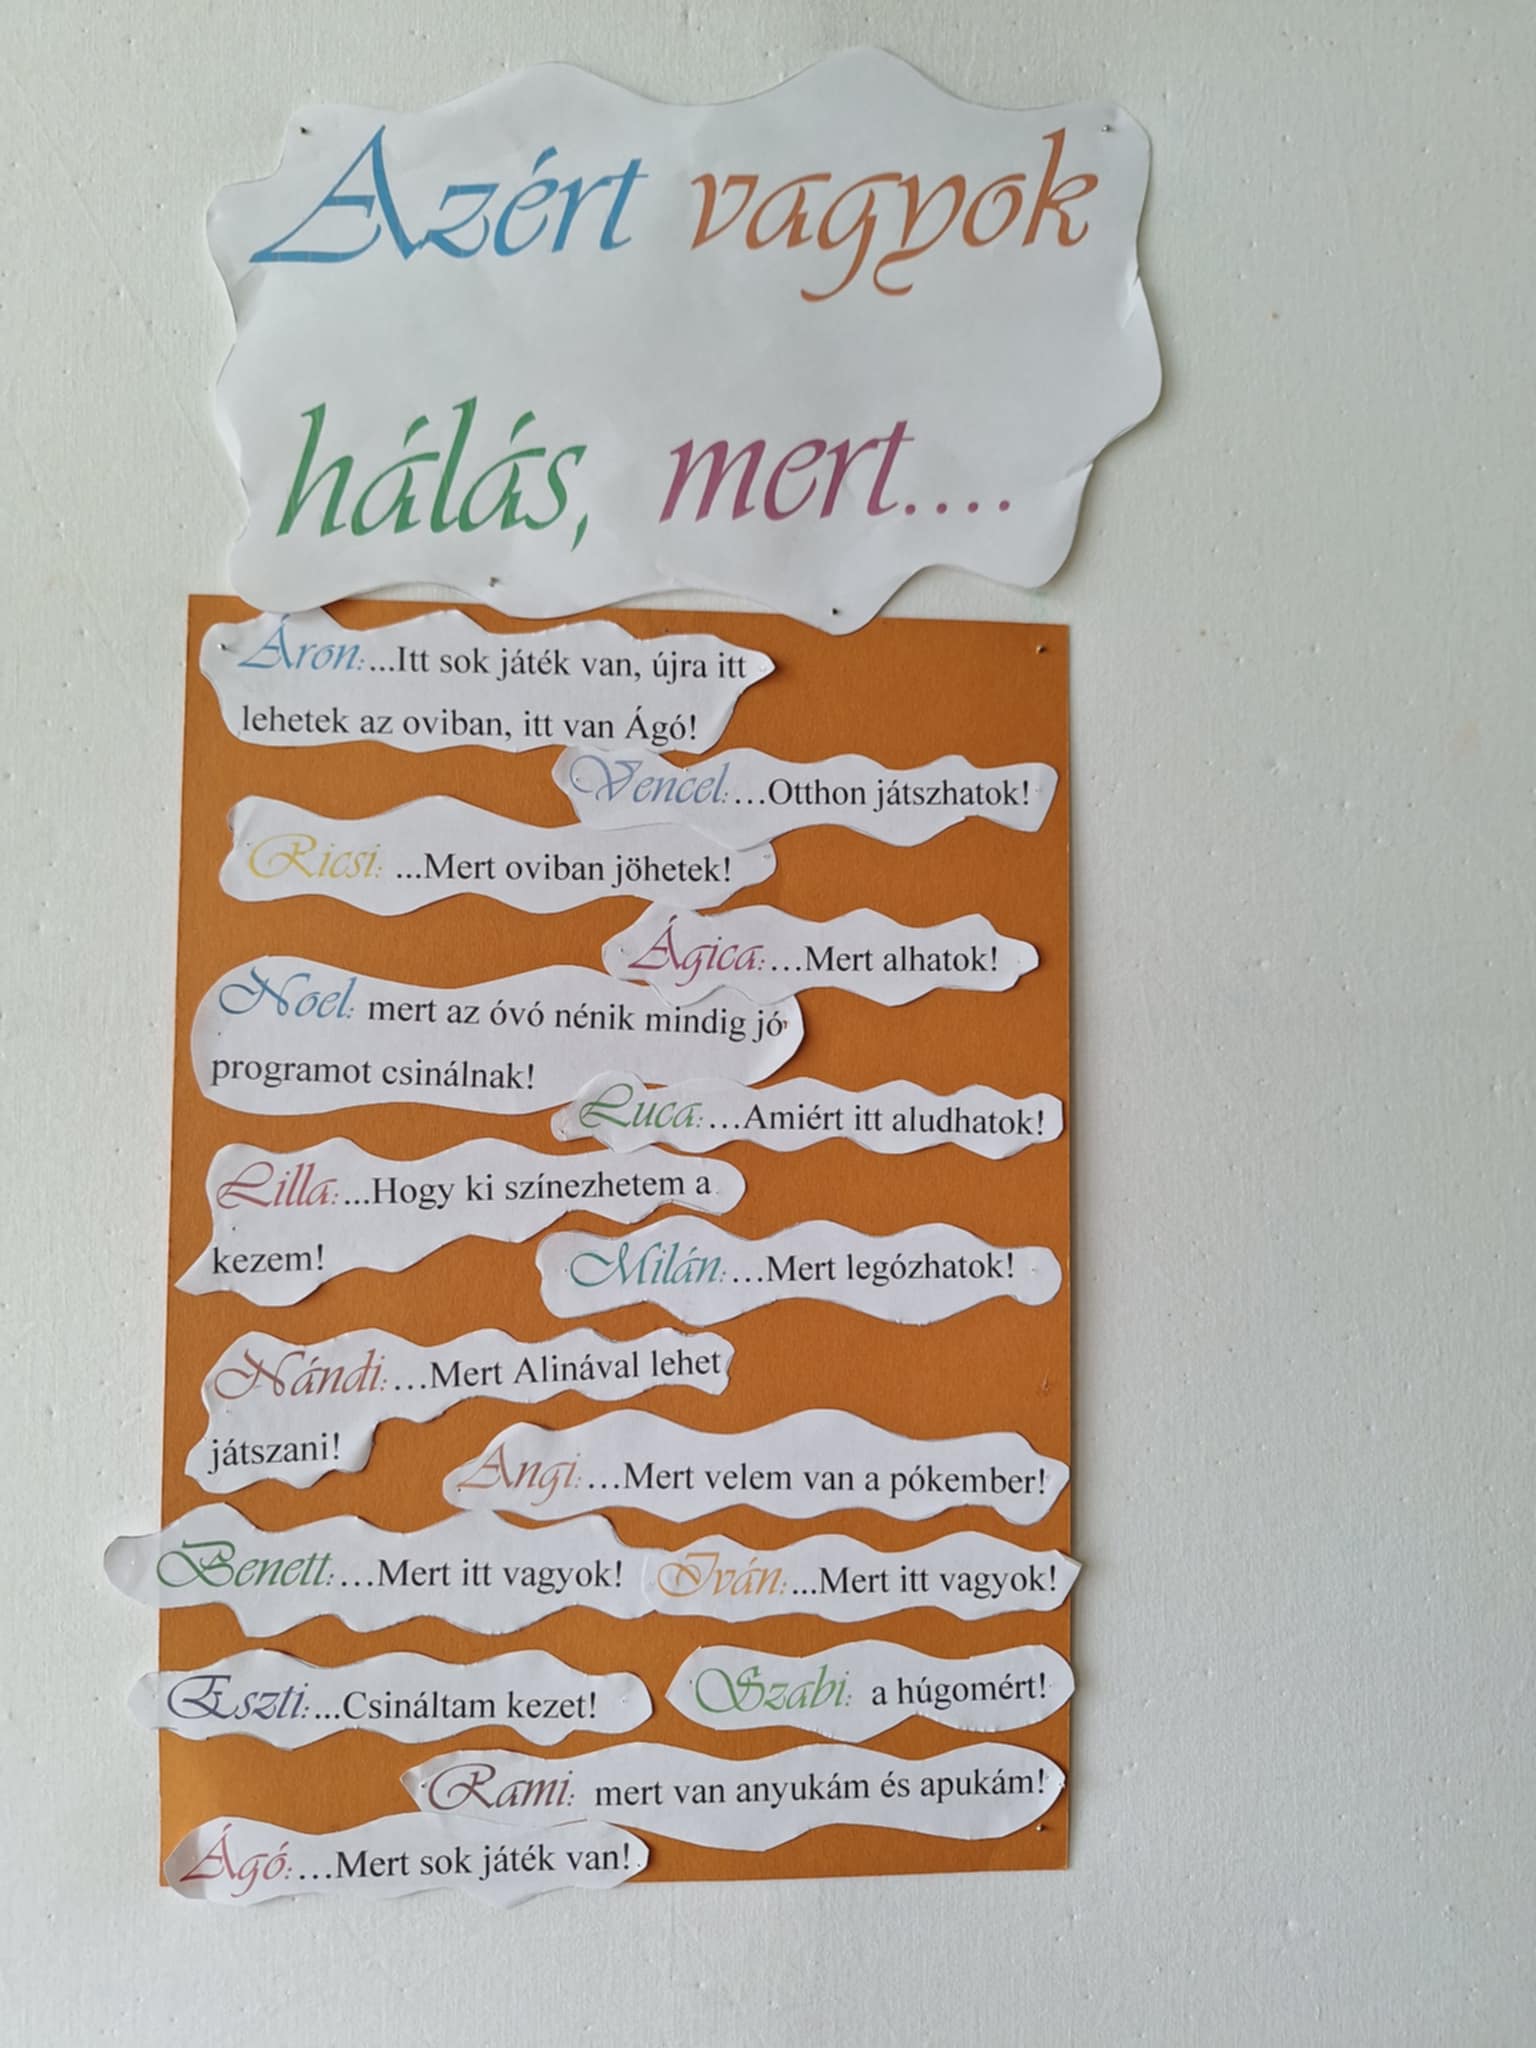 Azért vagyok
hálás, mert....
Áron:...Itt sok játék van, újra itt
lehetek az oviban, itt van Ágó!
Vencel:…Otthon játszhatok!
Ricsi: ...Mert oviban jöhetek!
Ágica:…Mert alhatok!
Noel: mert az óvó nénik mindig jó
programot csinálnak!
Luca:…Amiért itt aludhatok!
Lilla:...Hogy ki színezhetem a
kezem!
Milán:…Mert legózhatok!
Nándi:…Mert Alinával lehet
játszani!
Angi:…Mert velem van a pókember!
Benett:…Mert itt vagyok!
Iván:...Mert itt vagyok!
Eszti:...Csináltam kezet!
Szabi: a húgomért!
Rami: mert van anyukám és apukám!
Ágó:…Mert sok játék van!